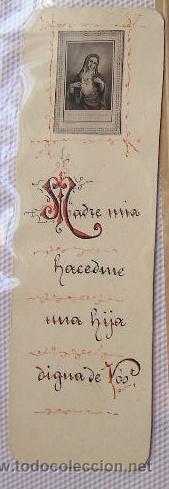 Madre mia
hacedme
una hija
digna de Vos
www.todocoleccion.net